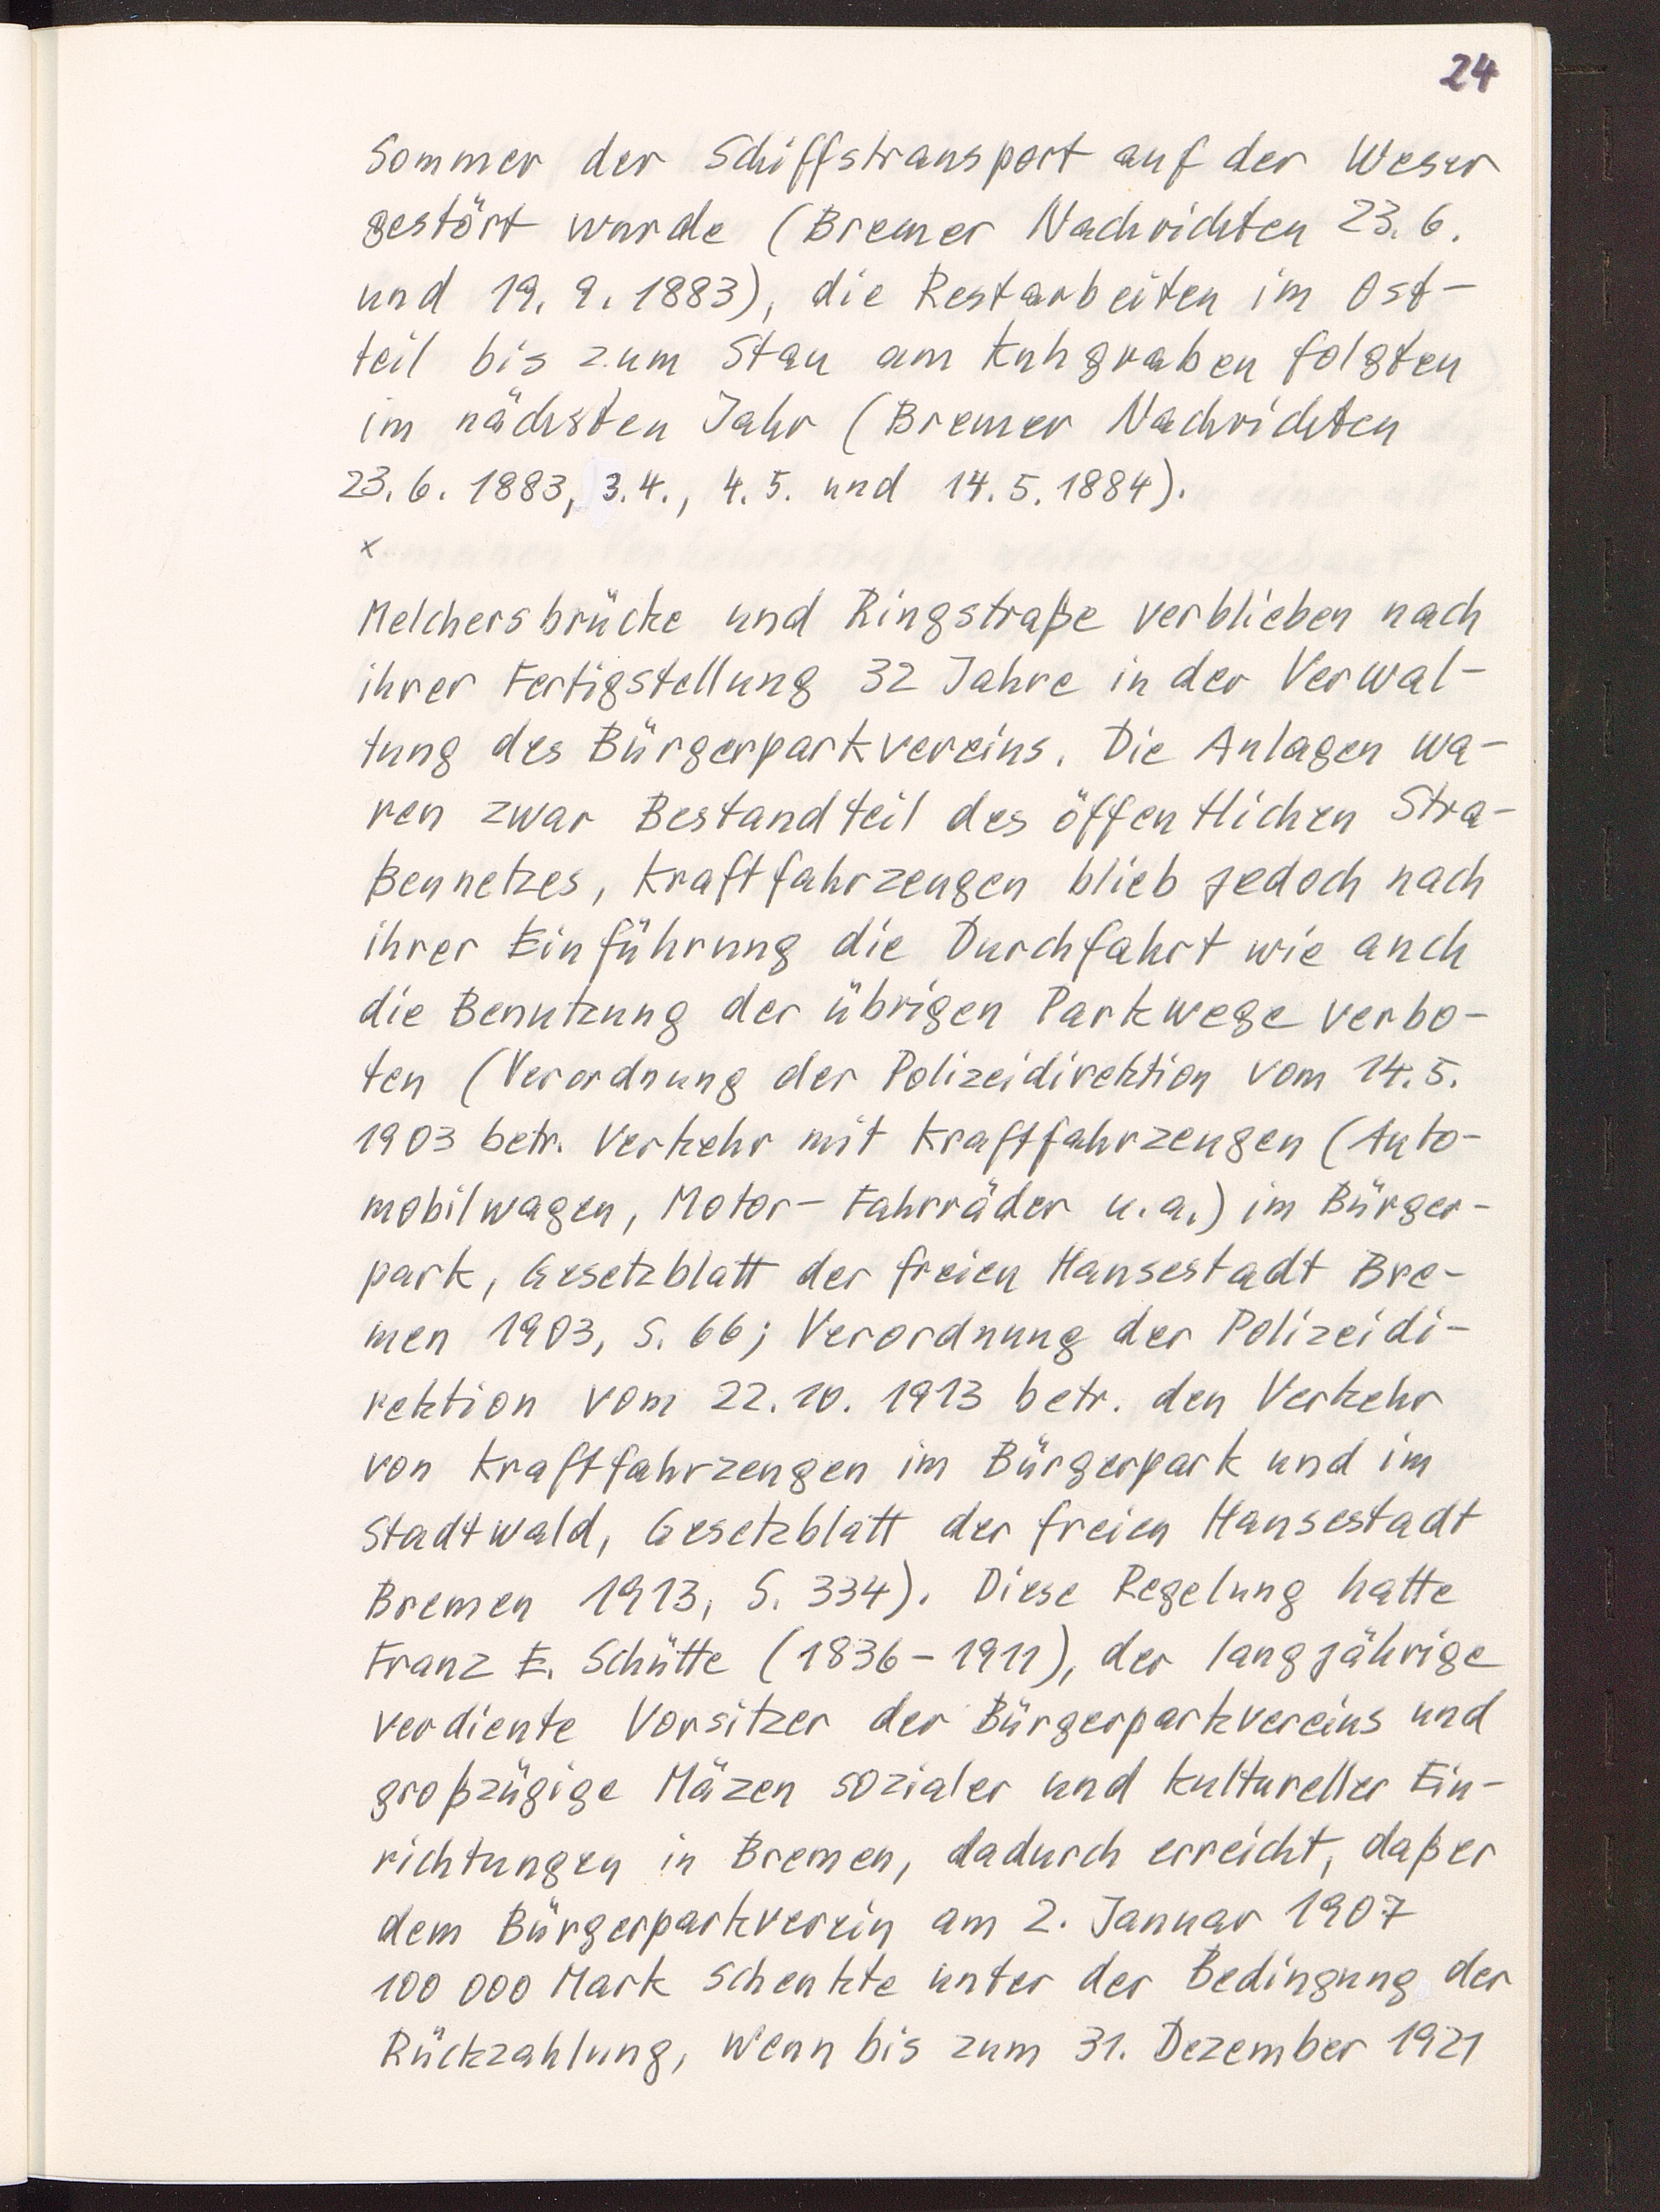 24
Sommer der Schiffstransport auf der Weser
gestört wurde (Bremer Nachrichten 23. 6.
und 19. 9. 1883), die Restarbeiten im Ost-
teil bis zum Stau am Kuhgraben folgten
im nächsten Jahr (Bremer Nachrichten
23. 6. 1883, 3. 4., 4. 5. und 14. 5. 1884).
x
Melchersbrücke und Ringstraße verblieben nach
ihrer Fertigstellung 32 Jahre in der Verwal-
tung des Bürgerparkvereins. Die Anlagen wa-
ren zwar Bestandteil des öffentlichen Stra-
ßennetzes, Kraftfahrzeugen blieb jedoch nach
ihrer Einführung die Durchfahrt wie auch
die Benutzung der übrigen Parkwege verbo-
ten (Verordnung der Polizeidirektion vom 14. 5.
1903 betr. Verkehr mit Kraftfahrzeugen (Auto-
mobilwagen, Motor-Fahrräder u. a.) im Bürger-
park, Gesetzblatt der freien Hansestadt Bre-
men 1903, S. 66; Verordnung der Polizeidi-
rektion vom 22. 10. 1913 betr. den Verkehr
von Kraftfahrzeugen im Bürgerpark und im
Stadtwald, Gesetzblatt der freien Hansestadt
Bremen 1913, S. 334). Diese Regelung hatte
Franz E. Schütte (1836-1911), der langjährige
verdiente Vorsitzer der Bürgerparkvereins und
großzügige Mäzen sozialer und kultureller Ein-
richtungen in Bremen, dadurch erreicht, daß er
dem Bürgerparkverein am 2. Januar 1907
100 000 Mark schenkte unter der Bedingung der
Rückzahlung, wenn bis zum 31. Dezember 1921